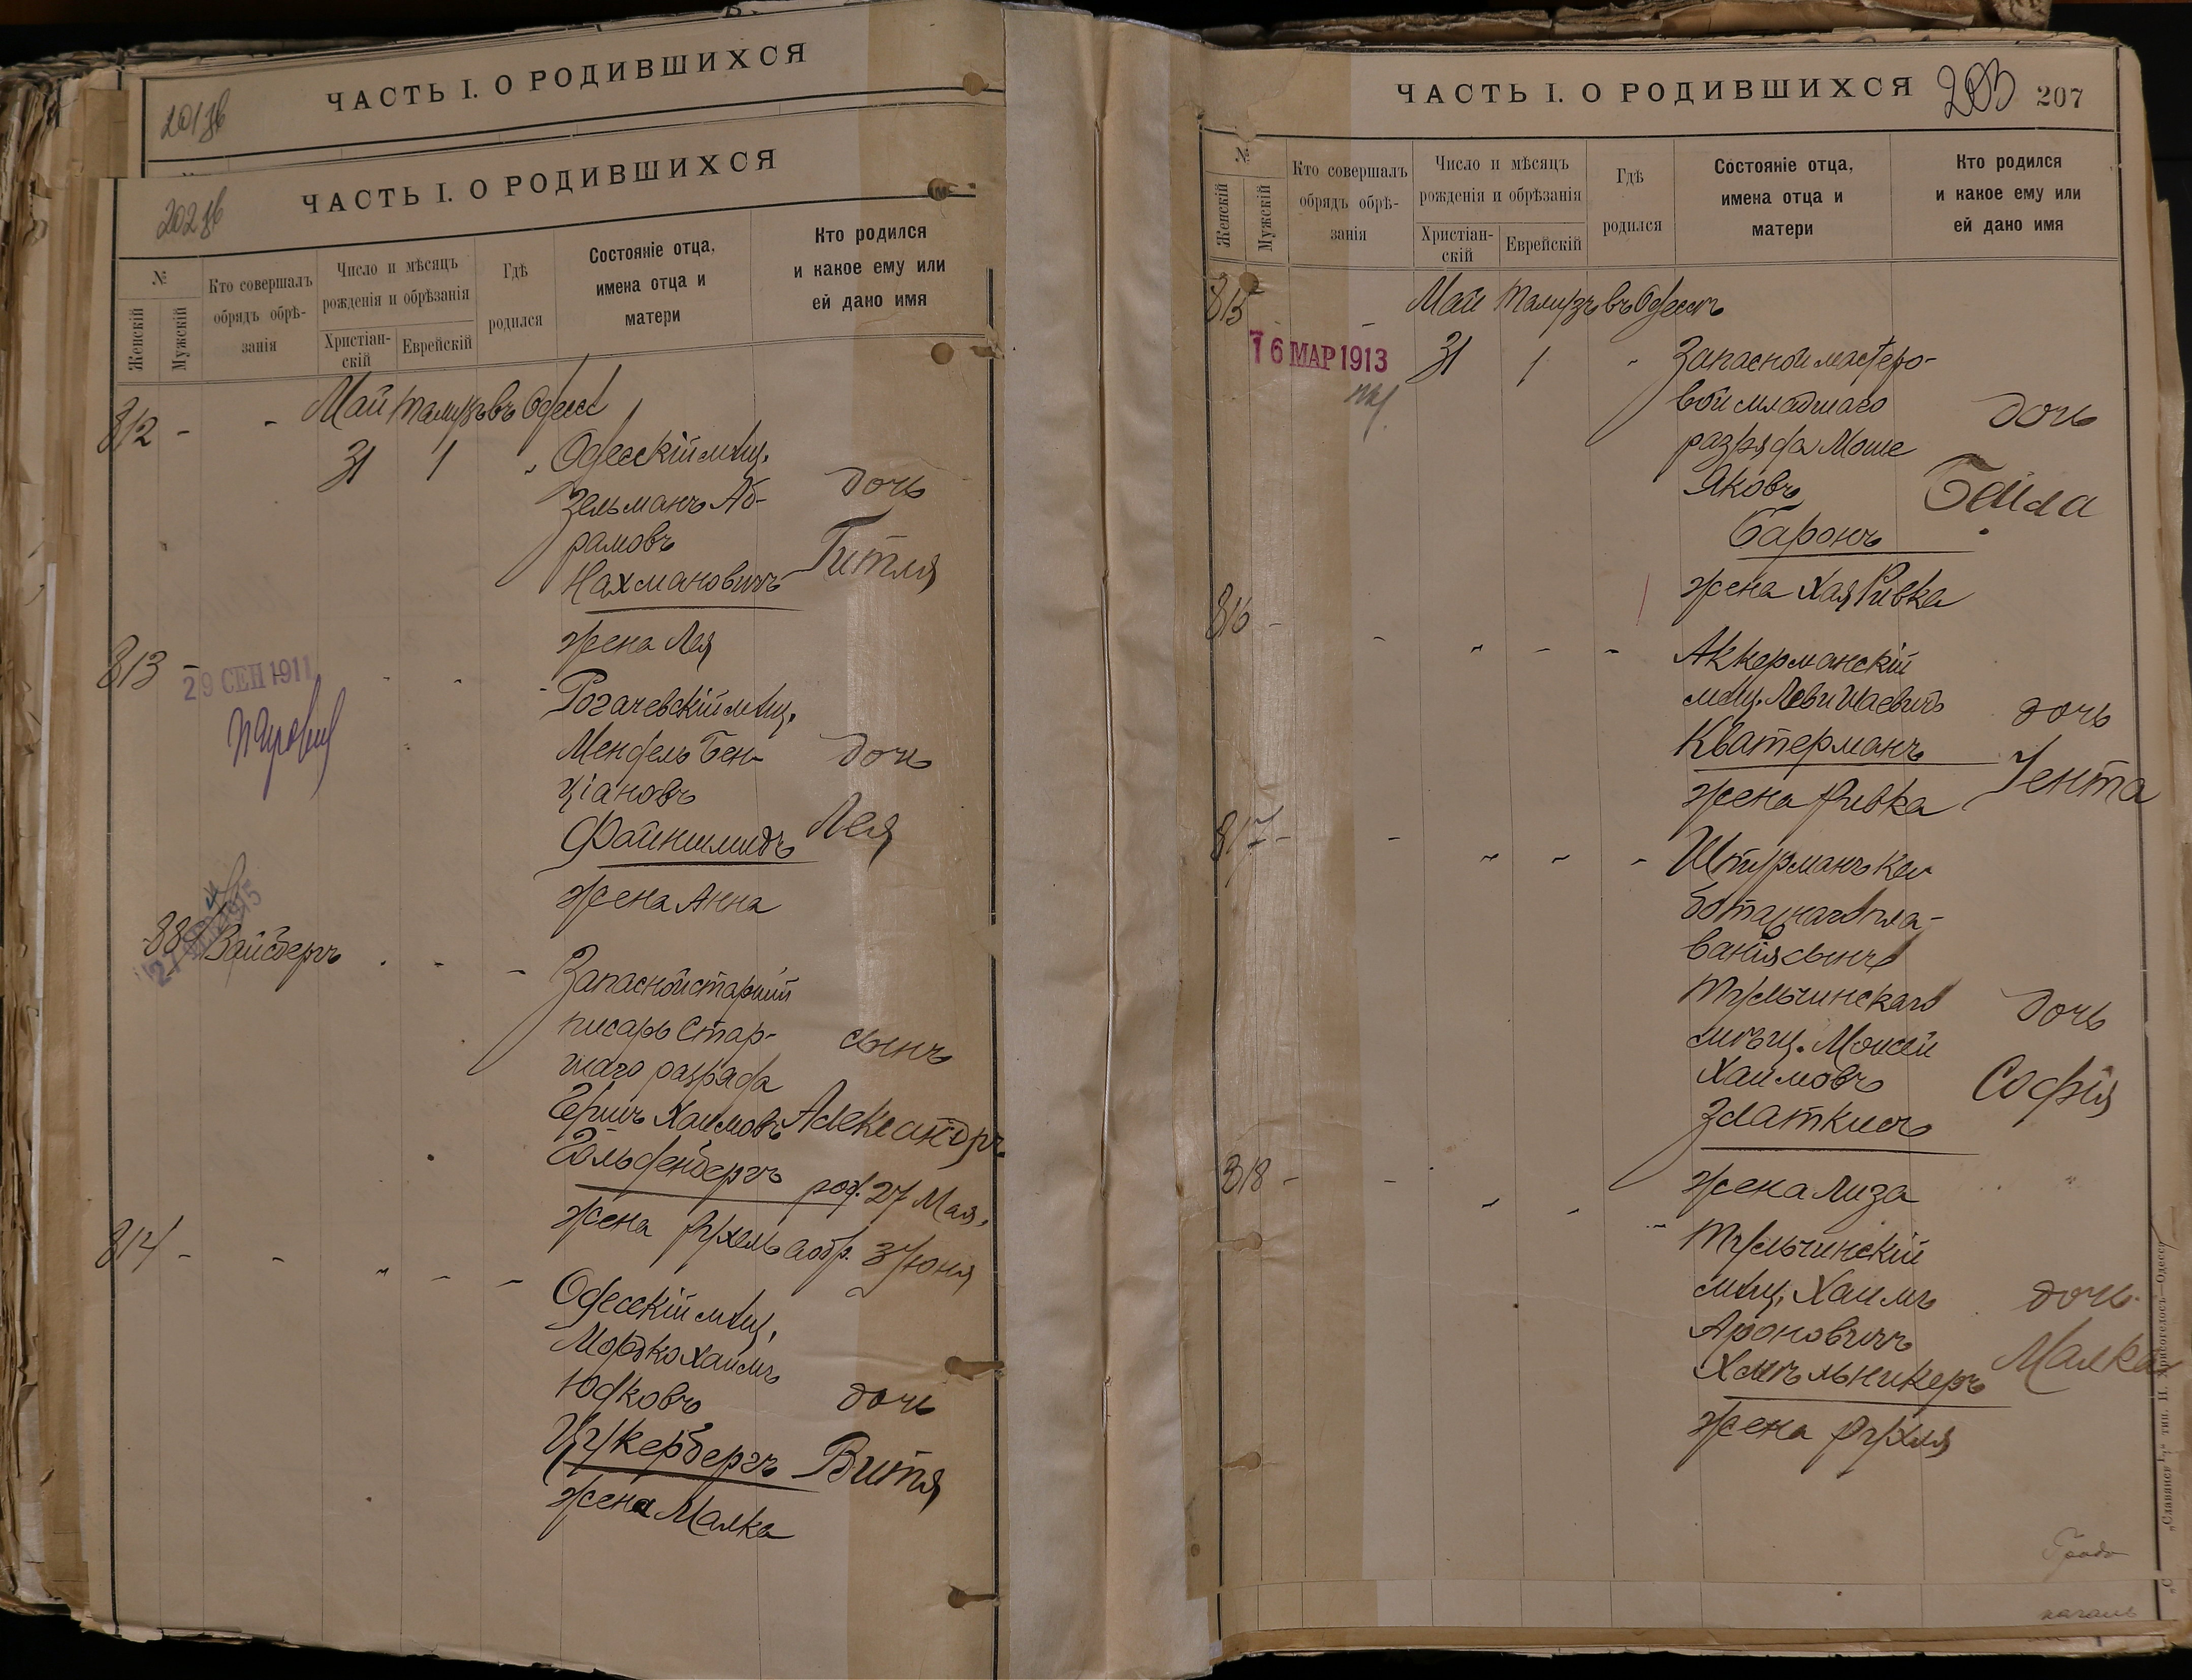 ЧАСТЬ I. О РОДИВШИХСЯ
201 зв
ЧАСТЬ I. О РОДИВШИХСЯ
202 зв
№
Женскій
Мужскій
Кто совершалъ
обрядъ обрѣ-
занія
Число и мѣсяцъ
рожденія и обрѣзанія
Христіан-
скій
Еврейскій
Гдѣ
родился
Состояніе отца,
имена отца и
матери
Кто родился
и какое ему или
ей дано имя
812 - - Май Тамузъ въ Одессѣ
31 1 „ Одесскій мѣщ.
Зельманъ Аб-
рамовъ
Нахмановичъ
жена Лея
дочь
Гитля
813 -
29 СЕН 1911
Рогачевскій мѣщ.
Мендель Бен-
ціановъ
Файншмидъ
жена Анна
дочь
Лея
Вайсбергъ
Запасной старшій
писарь Стар-
шаго разряда
Гершъ Хаимовъ
Гольденбергъ
жена Рухель
сынъ
Александръ
род. 27 Мая,
а обр. 3 Юня
814 - -
Одесскій мѣщ.
Мордко Хаимъ
Юдковъ
Цукербергъ
жена Малка
дочь
Витя
ЧАСТЬ I. О РОДИВШИХСЯ 203 207
№
Женскій
Мужскій
Кто совершалъ
обрядъ обрѣ-
занія
Число и мѣсяцъ
рожденія и обрѣзанія
Христіан-
скій
Еврейскій
Гдѣ
родился
Состояніе отца,
имена отца и
матери
Кто родился
и какое ему или
ей дано имя
815 - Май Тамузъ въ Одессѣ
16 МАР 1913
31 1 „ Запасной мастеро-
вой младшаго
разряда Моше
Яковъ
Баронъ
жена Хая Ривка
дочь
Бейла
816 - -
Аккерманскій
мѣщ. Леви Шаевичъ
Кватерманъ
жена Ривка
дочь
Іента
817 - -
Штурманъ ка-
ботажнаго пла-
ванія сынъ
Тульчинскаго
мѣщ. Моисей
Хаимовъ
Златкисъ
жена Лиза
дочь
Софія
818 - -
Тульчинскій
мѣщ. Хаимъ
Ароновичъ
Хмѣльникеръ
жена Рухля
дочь
Малка
„Славянск.“ тип. Н. Хрисогелосъ—Одесса